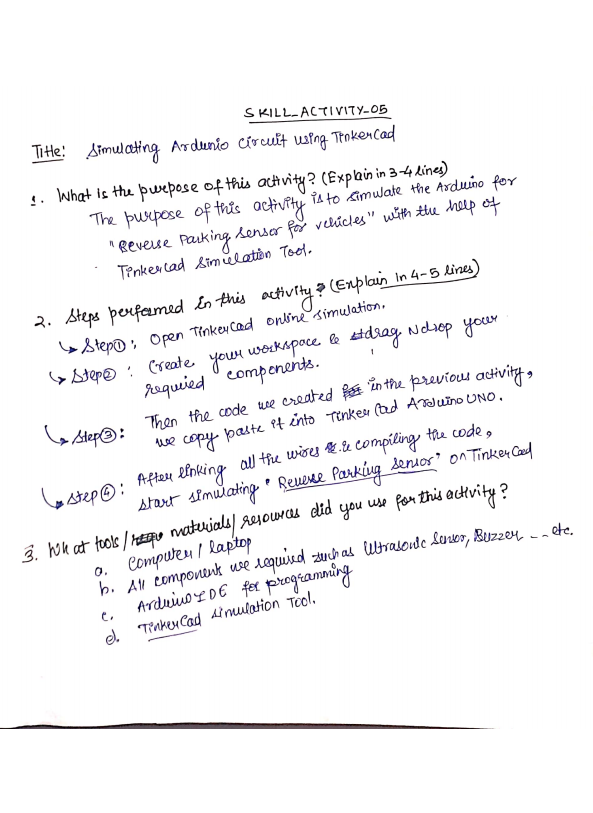 SKILL_ACTIVITY_05
Title: Simulating Ardunio Circuit using TinkerCad
1. What is the purpose of this activity? (Explain in 3-4 lines)
The purpose of this activity is to simulate the Arduino for
"Reverse Parking Sensor for vehicles" with the help of
Tinkercad Simulation Tool.
2. Steps performed in this activity? (Explain in 4-5 lines)
↳ Step①: Open TinkerCad online simulation.
↳ Step②: Create your workspace & drag N drop your
required components.
↳ Step③: Then the code we created in the previous activity,
we copy paste it into TinkerCad Arduino UNO.
↳ Step④: After linking all the wires & compiling the code,
start simulating "Reverse Parking Sensor" on TinkerCad
3. What tools/ materials/ resources did you use for this activity?
a. Computer / laptop
b. All components we required such as Ultrasonic Sensor, Buzzer -- etc.
c. Arduino IDE for programming
d. TinkerCad simulation Tool.